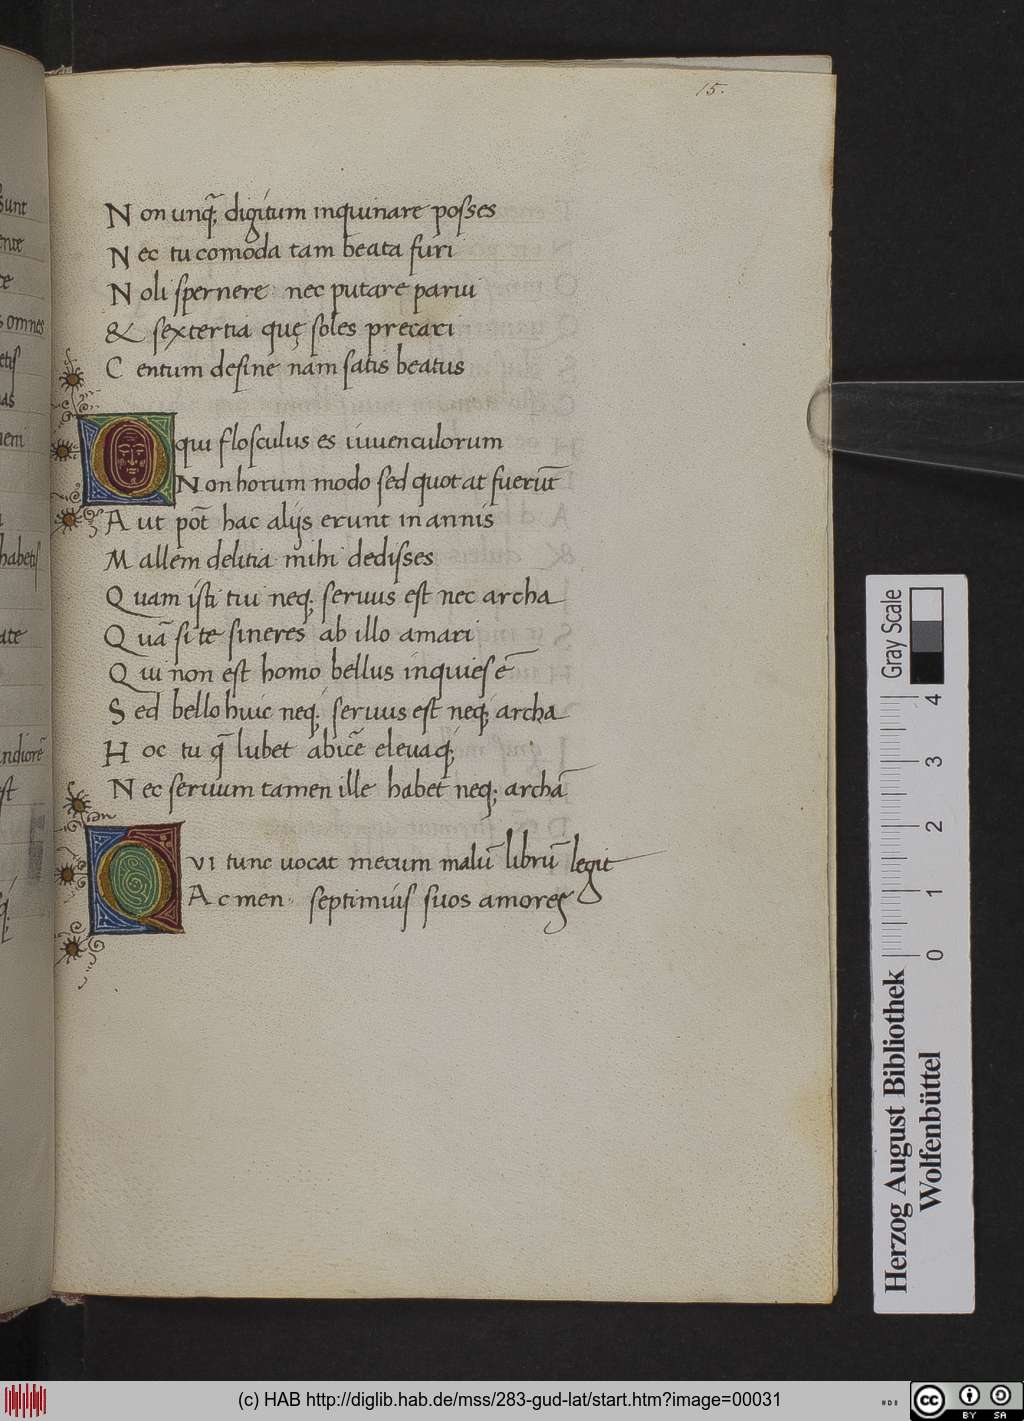 15.
Non unq̃; digitum inquinare posses
Nec tu comoda tam beata furi
Noli spernere nec putare parui
& sextertia quę soles precari
Centum desine nam satis beatus
O qui flosculus es iuuenculorum
Non horum modo sed quot at fuerūt
Aut pot̄ hac alijs erunt in annis
Mallem delitia mihi dedisses
Quam isti tui neq; seruus est nec archa
Quā si te sineres ab illo amari
Qui non est homo bellus inquies ē
Sed bello huic neq; seruus est neq; archa
Hoc tu q̄ lubet abice eleuaq;
Nec seruum tamen ille habet neq; archā
QVI tunc uocat mecum malū librū legit
Acmen septimuis suos amores
sunt
ente
omnes
etis
nas
uem
habetis
ate
andiorē
st
q;
Gray Scale
4
3
2
1
0
Herzog August Bibliothek
Wolfenbüttel
(c) HAB http://diglib.hab.de/mss/283-gud-lat/start.htm?image=00031
cc BY SA